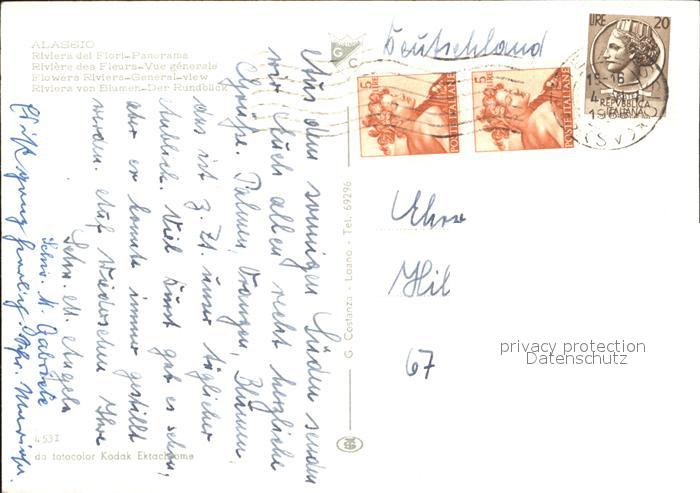 ALASSIO
Riviera dei Fiori-Panorama
Rivière des Fleurs-Vue générale
Flowers Riviera-General-view
Riviera von Blumen-Der Rundblick
Aus dem sonnigen Süden senden
wir Euch allen recht herzliche
Grüße. Palmen, Orangen, Blumen,
das ist z. Zt. unser täglicher
Anblick. Viel Durst gab es schon,
aber er konnte immer gestillt
werden. Auf Wiedersehen Ihre
Schw. M. Angela
Schw. M. Gabriele
4 53 I
da fotocolor Kodak Ektachrome
G. Costanza - Loano - Tel. 69296
G C
Deutschland
5 LIRE
POSTE ITALIANE
5 LIRE
POSTE ITALIANE
LIRE 20
REPVBBLICA
ITALIANA
15-16
Ehrw
Hil
67
privacy protection
Datenschutz